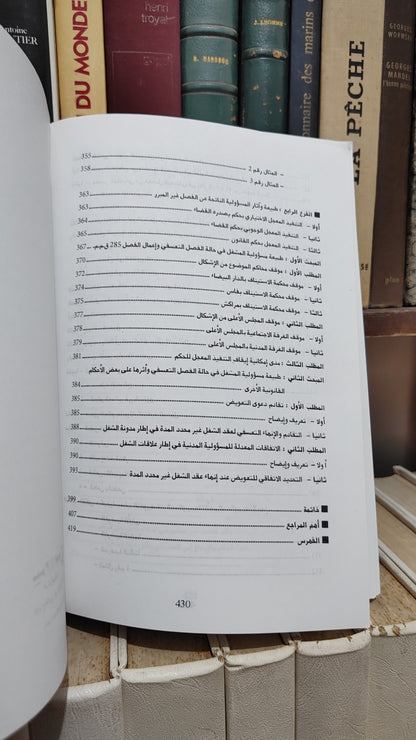 antoine
CARTIER
N DU MONDE
henri
troyat
H. BORDEAUX
onnaire des marins
LA PÊCHE
GEORGES
WORMSER
GEORGES
MANDEL
- المثال رقم 2 355
- المثال رقم 3 358
■ الفرع الرابع : طبيعة وآثار المسؤولية الناتجة عن الفصل غير المبرر 363
أولا - التنفيذ المعجل الاختياري بحكم يصدره القضاء 363
ثانيا - التنفيذ المعجل الوجوبي بحكم القضاء 364
ثالثا - التنفيذ المعجل بحكم القانون 365
المبحث الأول : طبيعة مسؤولية المشغل في حالة الفصل التعسفي وإعمال الفصل 285 ق.م.م. 367
المطلب الأول : موقف محاكم الموضوع من الإشكال 370
أولا - موقف محكمة الاستيناف بالدار البيضاء 372
ثانيا - موقف محكمة الاستيناف بفاس 374
ثالثا - موقف محكمة الاستيناف بمراكش 375
المطلب الثاني : موقف المجلس الأعلى من الإشكال 377
أولا - موقف الغرفة الاجتماعية بالمجلس الأعلى 378
ثانيا - موقف الغرفة المدنية بالمجلس الأعلى 379
المطلب الثالث : مدى إمكانية إيقاف التنفيذ المعجل للحكم 381
المبحث الثاني : طبيعة مسؤولية المشغل في حالة الفصل التعسفي وأثرها على بعض الأحكام
القانونية الأخرى 384
المطلب الأول : تقادم دعوى التعويض 385
أولا - تعريف وإيضاح 385
ثانيا - التقادم والإنهاء التعسفي لعقد الشغل غير محدد المدة في إطار مدونة الشغل 388
المطلب الثاني : الاتفاقات المعدلة للمسؤولية المدنية في إطار علاقات الشغل 390
أولا - تعريف وإيضاح 390
ثانيا - التحديد الاتفاقي للتعويض عند إنهاء عقد الشغل غير محدد المدة 393
■ خاتمة 399
■ أهم المراجع 407
■ الفهرس 419
430